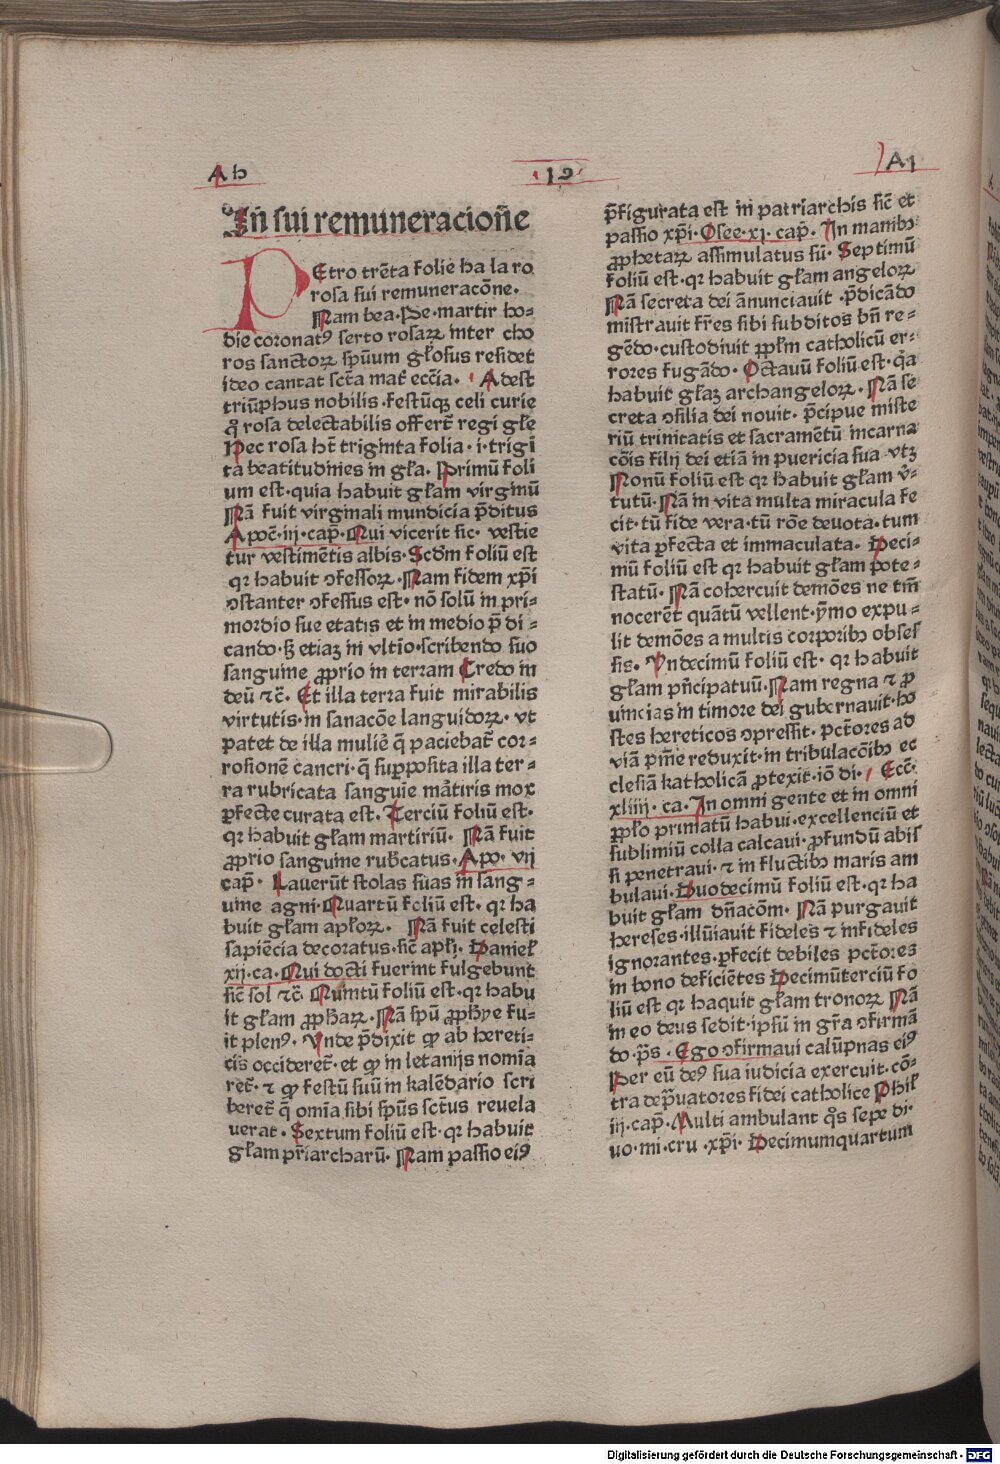 Ah
19
Ai
In sui remuneracione
PEtro trēta folie ha la ro
rosa sui remuneracōne.
Nam bea. Pe. martir ho=
die coronatꝰ serto rosaꝝ inter cho
ros sanctoꝝ spūum głosus residet
ideo cantat scta mat̄ eccīa. Adest
triūphus nobilis. festūqꝫ celi curie
qꝰ rosa delectabilis offert̄ regi głe
Hec rosa ht̄ triginta folia. i. trigī
ta beatitudines in gła. Primū foli
um est. quia habuit głam virginū
Nā fuit virginali mundicia p̄ditus
Apoc̄. iij. cap̄. Qui vicerit sic. vestie
tur vestimētis albis. Scdm foliū est
qꝛ habuit ꝯfessoꝝ. Nam fidem xp̄i
ꝯstanter ꝯfessus est. nō solū in pri=
mordio sue etatis et in medio p̄ di=
cando. sꝫ etiaꝫ in vltīo. scribendo suo
sanguine ꝓprio in terram Credo in
deū ⁊c̄. Et illa terra fuit mirabilis
virtutis. in sanacōe languidoꝝ. vt
patet de illa muliē q̄ paciebat̄ cor=
rosionē cancri. q̄ suꝑposita illa ter=
ra rubricata sanguīe mātiris mox
ꝑfecte curata est. Terciū foliū est.
qꝛ habuit głam martiriū. Nā fuit
ꝓprio sanguine rub̄catus. Apo. vij
cap̄. Lauerūt stolas suas in sang=
uine agni. Quartū foliū est. qꝛ ha
buit głam apłoꝝ. Nā fuit celesti
sapiēcia decoratus. sic̄ apłi. Danieł
xij. ca. Qui docti fuerint fulgebunt
sic̄ sol ⁊c̄. Quintū foliū est. qꝛ habu
it głam ꝓpħaꝝ. Nā spū ꝓpħye fu=
it plenꝰ. Vnde p̄dixit ꝙ ab hereti=
cis occideret̄. et ꝙ in letanijs nomīa
ret̄. ⁊ ꝙ festū suū in kalēdario scri
beret̄ q̄ omīa sibi spūs sctūs reuela
uerat. Sextum foliū est. qꝛ habuit
głam pr̄iarcharū. Nam passio eiꝰ
p̄figurata est in patriarchis sic̄ et
passio xp̄i. Osee. xi. cap̄. In manibꝫ
ꝓphetaꝝ assimulatus sū. Septimū
foliū est. qꝛ habuit głam angeloꝝ
Nā secreta dei ānunciauit. p̄dicādo
mistrauit fr̄es sibi subditos bn̄ re=
gēdo. custodiuit ꝓpłm catholicū er=
rores fugādo. Octauū foliū est. q̄a
habuit głaꝫ archangeloꝝ. Nā se
creta ꝯsilia dei nouit. p̄cipue miste
riū trinitatis et sacramētū incarna
cōis filij dei etiā in puericia sua vtꝫ
Nonū foliū est qꝛ habuit głam v̄=
tutū. Nā in vita multa miracula fe
cit. tū fide vera. tū rōe deuota. tum
vita ꝑfecta et immaculata. Deci=
mū foliū est qꝛ habuit głam pote=
statū. Nā cohercuit demōes ne tm̄
nocerēt quātū vellent. ȳmo expu=
lit demōes a multis corporibꝫ obses
sis. Vndecimū foliū est. qꝛ habuit
głam pn̄cipatuū. Nam regna ⁊ ꝓ
uincias in timore dei gubernauit. ho
stes hereticos ꝯpressit. pctōres ad
viā pn̄ie reduxit. in tribulacōibꝫ ec
clesiā katholicā ꝓtexit. iō di. Ecc̄.
xliiij. ca. In omni gente et in omni
ꝓpło primatū habui. excellenciū et
sublimiū colla calcaui. ꝓfundū abis
si penetraui. ⁊ in fluctibꝫ maris am
bulaui. Duodecimū foliū est. qꝛ ha
buit głam dn̄acōm. Nā purgauit
hereses. illūiauit fideles ⁊ infideles
ignorantes. ꝑfecit debiles pctōres
in bono deficiētes Decimūterciū fo
liū est qꝛ haquit głam tronoꝝ Nā
in eo deus sedit. ipsū in gr̄a ꝯfirmā
do. p̄s. Ego ꝯfirmaui calūpnas eiꝰ
Per eū deꝰ sua iudicia exercuit. cō=
tra dep̄uatores fidei catholice Phił
iij. cap̄. Multi ambulant qͦs sepe di.
uo. ini. cru. xp̄i. Decimumquartum
Digitalisierung gefördert durch die Deutsche Forschungsgemeinschaft - DFG